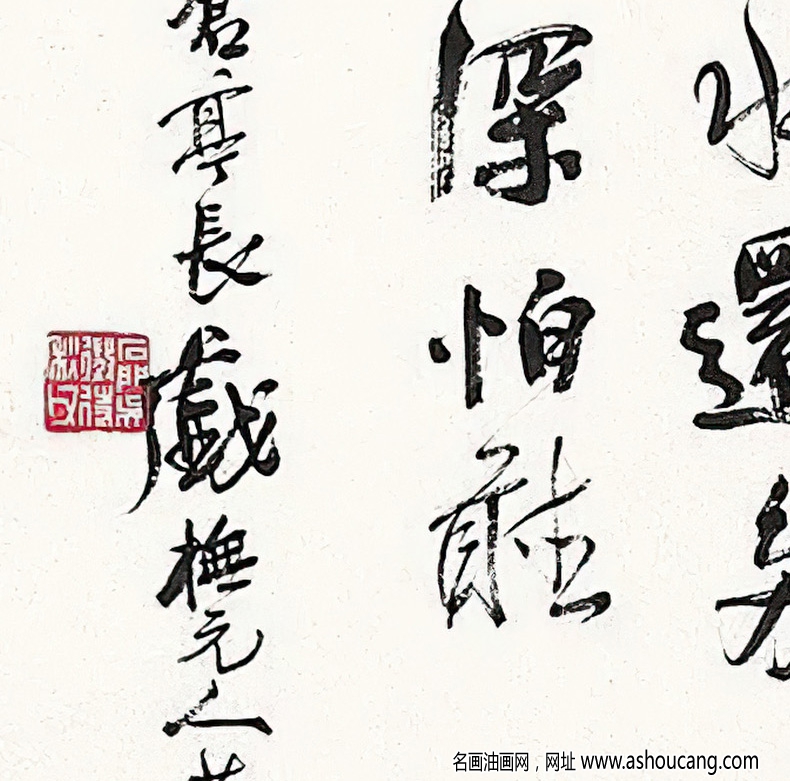 水還
深怕能
亭長戲橅元人
名画油画网，网址 www.ashoucang.com